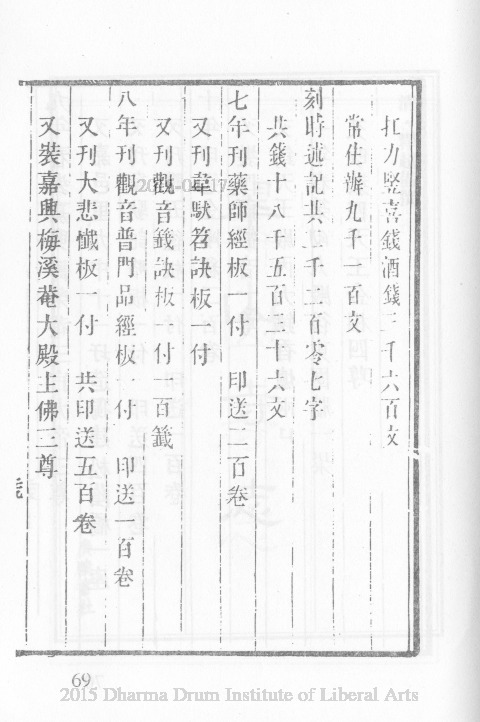 扛力竪喜錢酒錢三千六百文
常住辦九千一百文
刻時述記共二千二百零七字
共錢十八千五百三十六文
七年刊藥師經板一付 印送二百卷
又刊韋馱笤訣板一付
又刊觀音籤訣板一付一百籤
八年刊觀音普門品經板一付 印送一百卷
又刊大悲懺板一付 共印送五百卷
又裝嘉興梅溪菴大殿上佛三尊
69
2015 Dharma Drum Institute of Liberal Arts